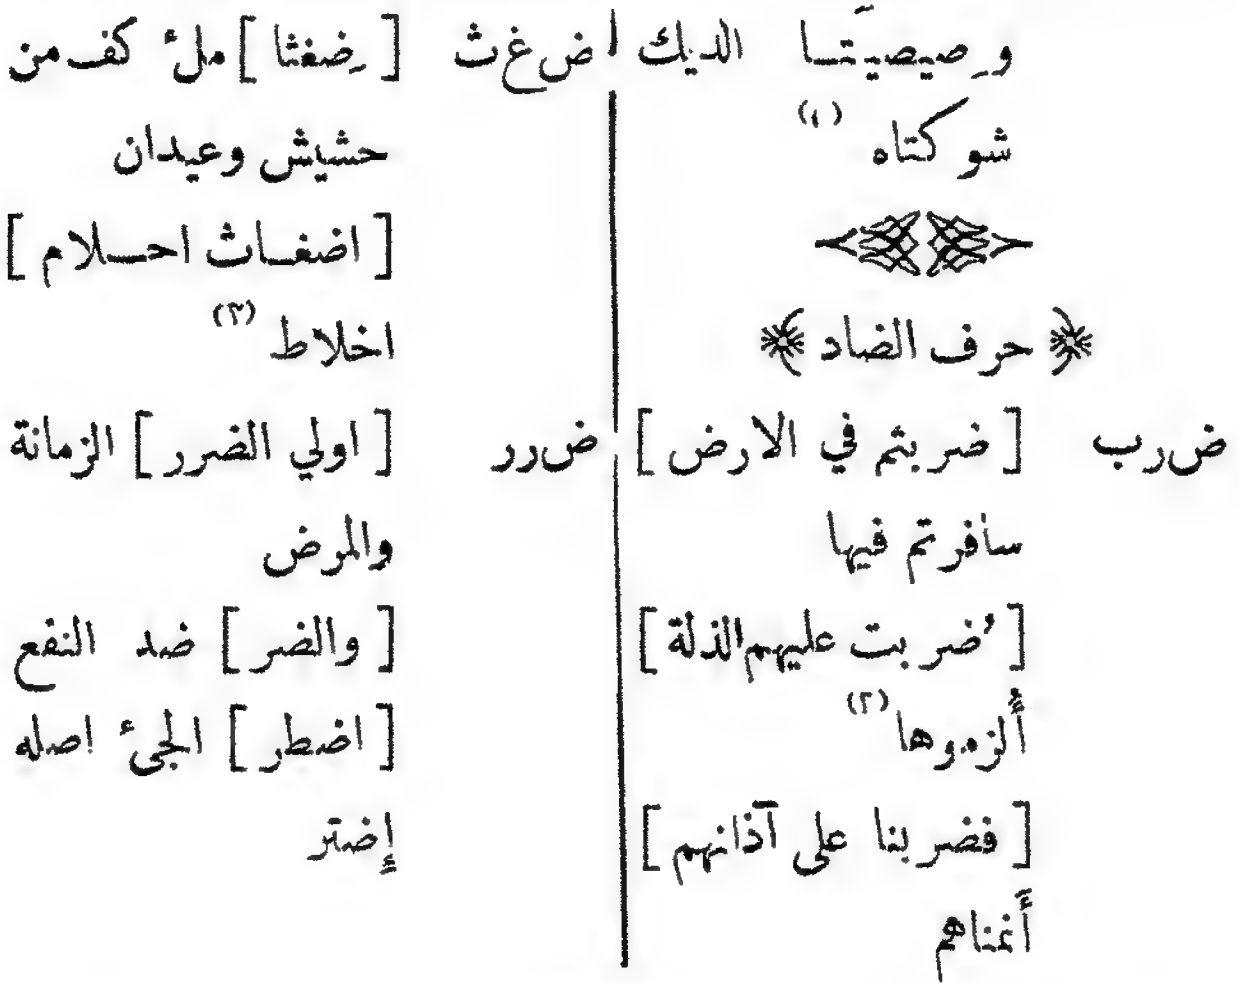 وِصيصيَتـا الديك
شوكتاه (١)
﴿ حرف الضاد ﴾
ض ر ب [ ضربتم في الارض ]
سافرتم فيها
[ ضُربت عليهم الذلة ]
أُلزموها (٢)
[ فضربنا على آذانهم ]
أَنمناهم
ض غ ث [ ضِغثا ] ملء كف من
حشيش وعيدان
[ اضغـاث احـلام ]
اخلاط (٣)
ض ر ر [ اولي الضرر ] الزمانة
والمرض
[ والضر ] ضد النفع
[ اضطر ] الجئ اصله
إِضتر